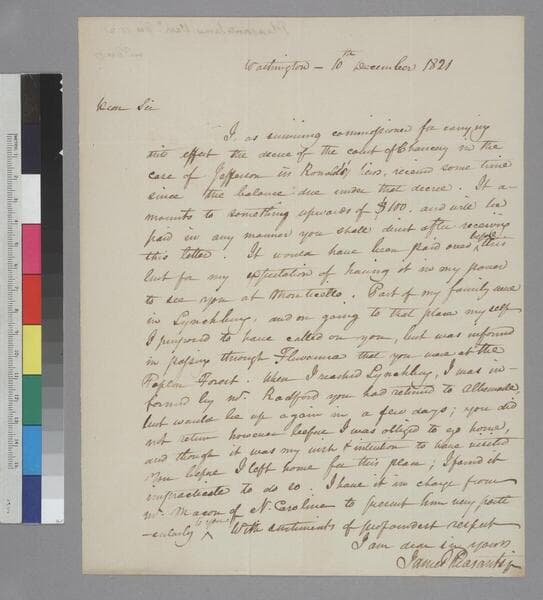 Washington - 10th December 1821
Dear Sir
I, as surviving commissioner for carrying
into effect the decree of the court of Chancery in the
case of Jefferson vs Ronald's exrs, received some time
since the balance due under that decree. It a-
mounts to something upwards of $100. and will be
paid in any manner you shall direct after receiving
this letter. It would have been paid over before this
but for my expectation of having it in my power
to see you at Monticello. Part of my family were
in Lynchburg, and on going to that place myself
I purposed to have called on you, but was informed
in passing through Fluvanna that you were at the
Poplar Forest. When I reached Lynchburg, I was in-
formed by Mr. Radford you had returned to Albemarle,
but would be up again in a few days; you did
not return however before I was obliged to go home,
and though it was my wish & intention to have visited
you before I left home for this place; I found it
impracticable to do so. I have it in charge from
Mr. Macon of N. Carolina to present him very parti
-cularly to you. With sentiments of profoundest respect
I am dear sir yours
James Pleasants jr